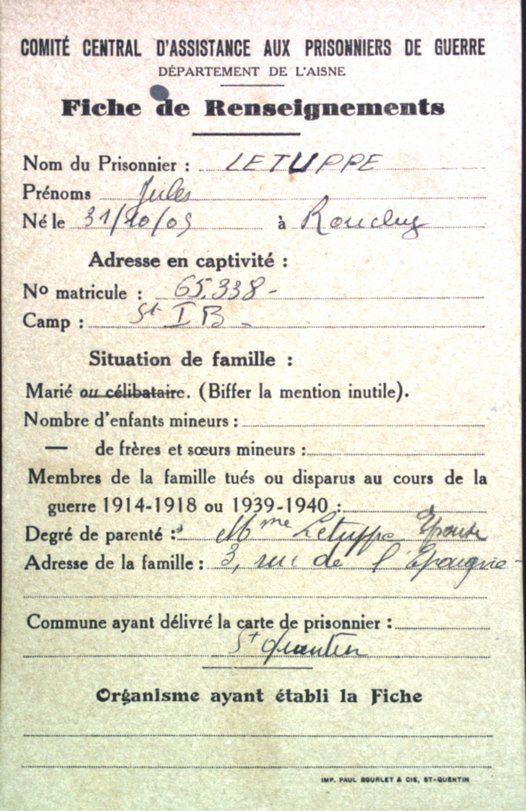 COMITÉ CENTRAL D'ASSISTANCE AUX PRISONNIERS DE GUERRE
DÉPARTEMENT DE L'AISNE
Fiche de Renseignements
Nom du Prisonnier : LETUPPE
Prénoms Jules
Né le 31/10/09 à
Adresse en captivité :
No matricule : 65.338-
Camp : St I B -
Situation de famille :
Marié ou célibataire. (Biffer la mention inutile).
Nombre d'enfants mineurs :
— de frères et sœurs mineurs :
Membres de la famille tués ou disparus au cours de la
guerre 1914-1918 ou 1939-1940 :
Degré de parenté : Mme Letuppe Epouse
Adresse de la famille : 3, rue de l'Epargne -
Commune ayant délivré la carte de prisonnier :
St Quentin
Organisme ayant établi la Fiche
IMP. PAUL BOURLET & CIE, ST-QUENTIN